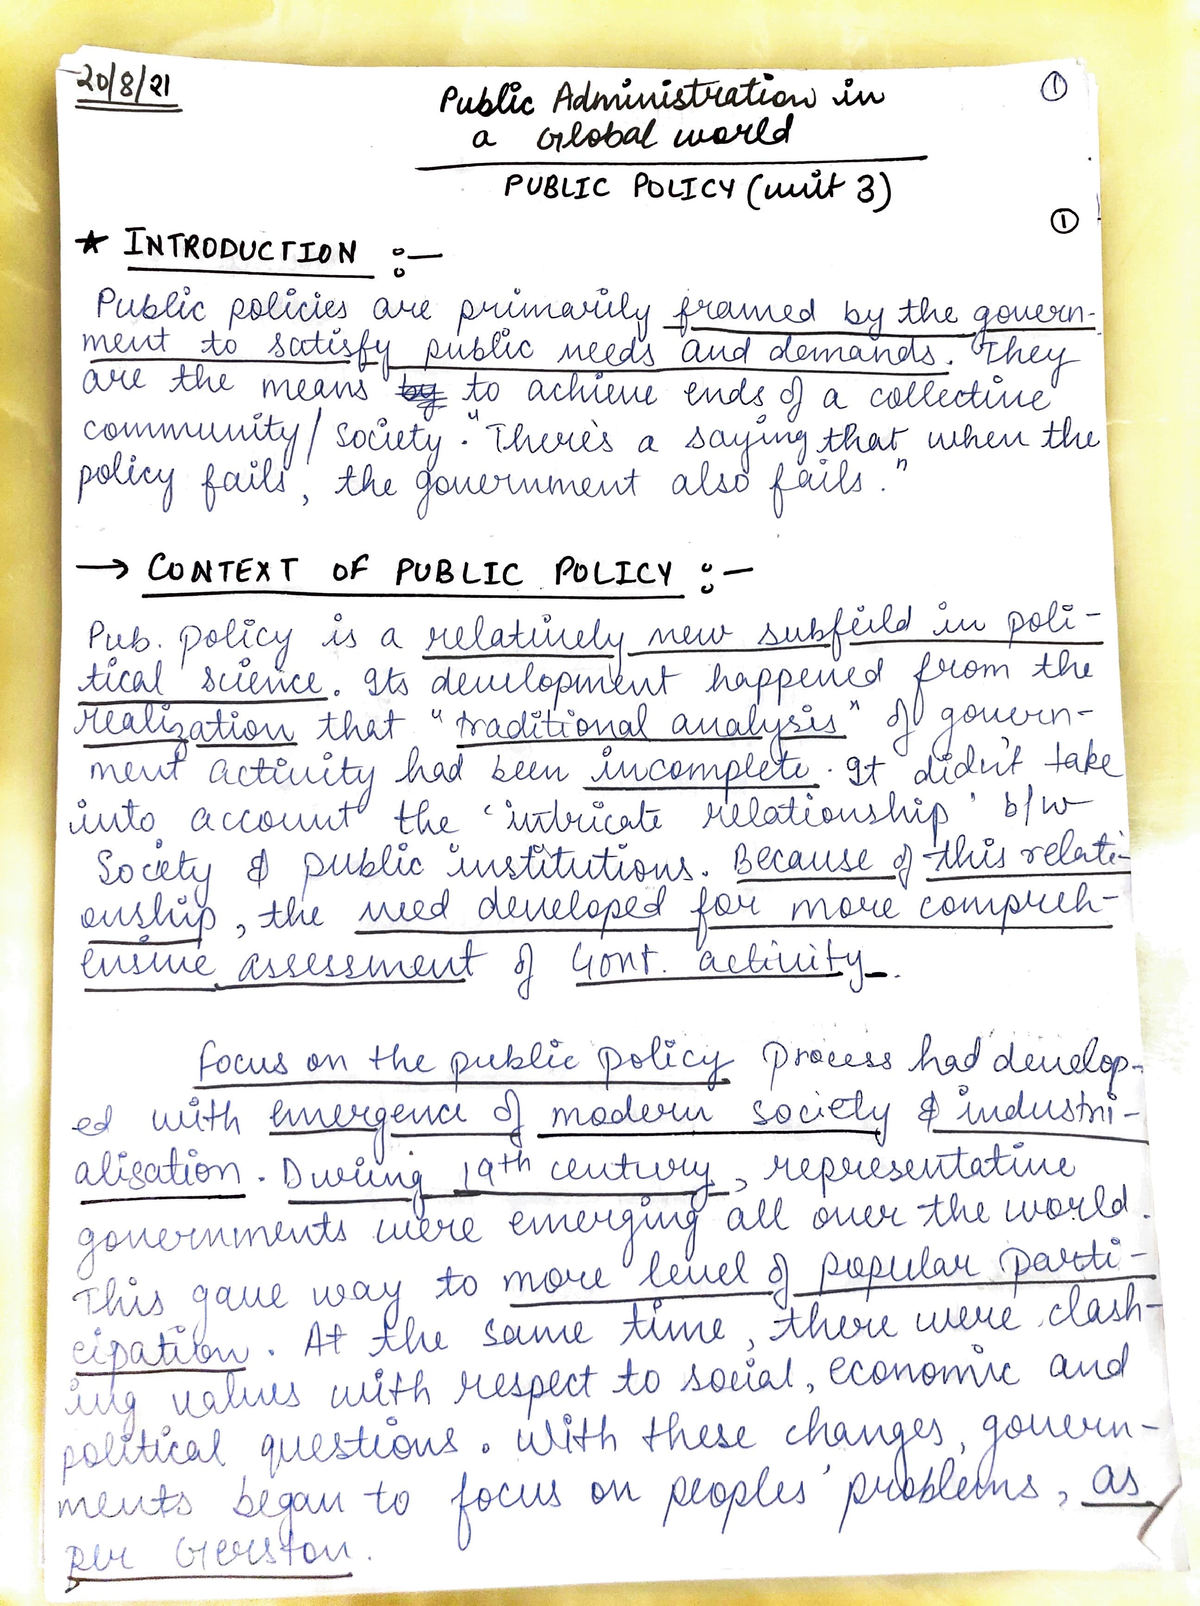 20/8/21
①
Public Administration in
a Global world
PUBLIC POLICY (unit 3)
①
★ INTRODUCTION :-
Public policies are primarily framed by the govern-
ment to satisfy public needs and demands. They
are the means by to achieve ends of a collective
community/ society. "There's a saying that when the
policy fails, the government also fails."
→ CONTEXT OF PUBLIC POLICY :-
Pub. policy is a relatively new subfeild in poli-
tical science. Its development happened from the
realization that "traditional analysis" of govern-
ment activity had been incomplete. It didn't take
into account the 'intricate relationship' b/w
Society & public institutions. Because of this relati-
onship, the need developed for more compreh-
ensive assessment of Govt. activity.
Focus on the public policy process had develop-
ed with emergence of modern society & industri-
alisation. During 19th century, representative
governments were emerging all over the world.
This gave way to more level of popular parti-
cipation. At the same time, there were clash-
ing values with respect to social, economic and
political questions. With these changes, govern-
ments began to focus on peoples' problems, as
per Gerston.